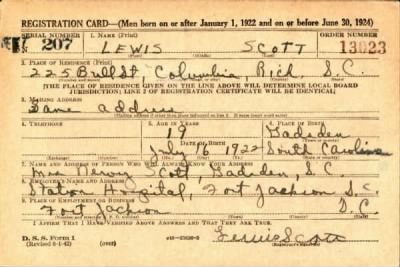 REGISTRATION CARD—(Men born on or after January 1, 1922 and on or before June 30, 1924)
SERIAL NUMBER 1. NAME (Print) ORDER NUMBER
207 LEWIS SCOTT 13023
2. PLACE OF RESIDENCE (Print)
225 Bull St, Columbia, Rich. S.C.
[THE PLACE OF RESIDENCE GIVEN ON THE LINE ABOVE WILL DETERMINE LOCAL BOARD
JURISDICTION; LINE 2 OF REGISTRATION CERTIFICATE WILL BE IDENTICAL]
3. MAILING ADDRESS
Same address
4. TELEPHONE 5. AGE IN YEARS 6. PLACE OF BIRTH
19 Gadsden
DATE OF BIRTH
July 16 1922 South Carolina
7. NAME AND ADDRESS OF PERSON WHO WILL ALWAYS KNOW YOUR ADDRESS
Mrs Scott, Gadsden, S.C.
8. EMPLOYER'S NAME AND ADDRESS
Station Hospital, Fort Jackson S.C.
9. PLACE OF EMPLOYMENT OR BUSINESS
Fort Jackson S.C.
I AFFIRM THAT I HAVE VERIFIED ABOVE ANSWERS AND THAT THEY ARE TRUE.
D. S. S. FORM 1
(Revised 6-1-42) (over)
Lewis Scott